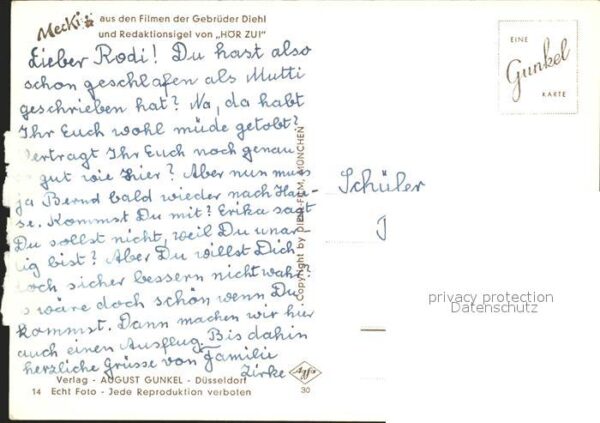 Mecki aus den Filmen der Gebrüder Diehl
und Redaktionsigel von „HÖR ZU!"
Lieber Rodi! Du hast also
schon geschlafen als Mutti
geschrieben hat? Na, da habt
Ihr Euch wohl müde getobt?
Vertragt Ihr Euch noch genau
so gut wie hier? Aber nun muss
ja Bernd bald wieder nach Hau-
se. Kommst Du mit? Erika sagt
Du sollst nicht, weil Du unar
tig bist? Aber Du willst Dich
doch sicher bessern nicht wahr?
s wäre doch schön wenn Du
kommst. Dann machen wir hier
auch einen Ausflug. Bis dahin
herzliche Grüsse von Familie
Zirke
Verlag - AUGUST GUNKEL - Düsseldorf
14 Echt Foto - Jede Reproduktion verboten
Agfa
30
Copyright by DIEHL-FILM, MÜNCHEN
EINE
Gunkel
KARTE
Schüler
privacy protection
Datenschutz